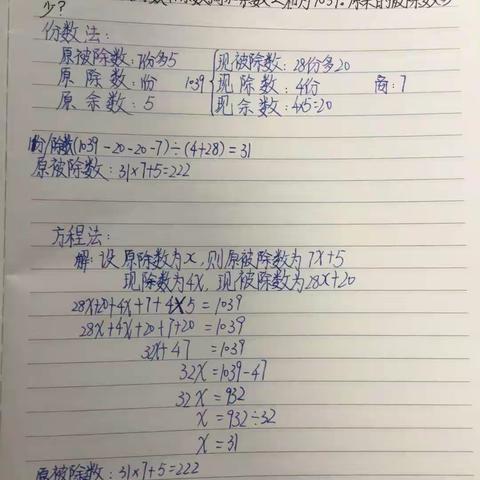 和为1039. 原来的被除数
少？
份数法：
原被除数：7份多5 现被除数：28份多20
原 除数：1份 1039 现 除数：4份 商：7
原 余数：5 现 余数：4×5=20
1份/除数(1039-20-20-7)÷(4+28)=31
原被除数：31×7+5=222
方程法：
解：设原除数为x，则原被除数为7x+5
现除数为4x，现被除数为28x+20
28x+20+4x+7+4×5=1039
28x+4x+20+7+20=1039
32x+47=1039
32x=1039-47
32x=932
x=932÷32
x=31
原被除数：31×7+5=222